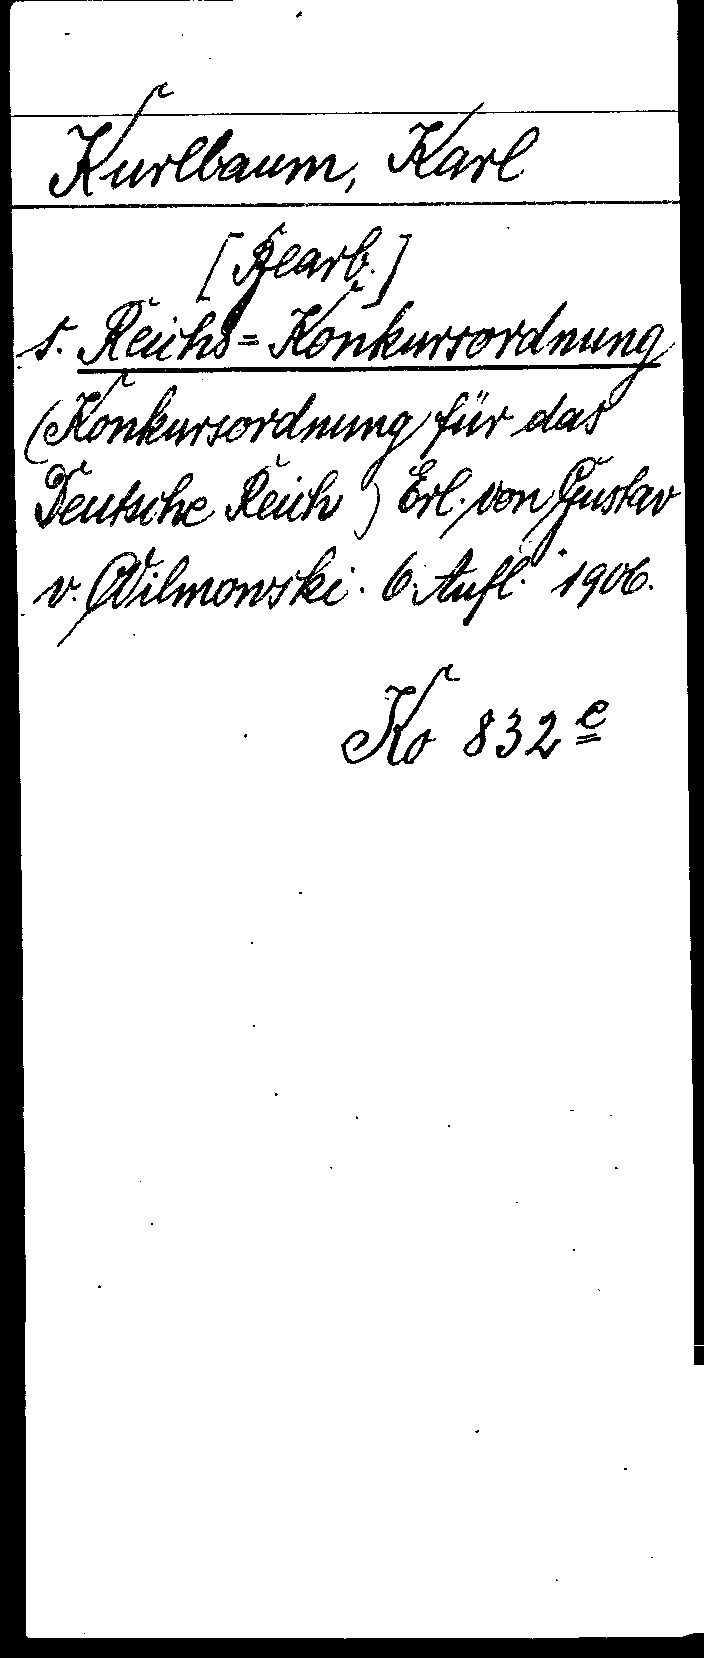 Kurlbaum, Karl
[Bearb.]
s. Reichs=Konkursordnung
(Konkursordnung für das
Deutsche Reich) Erl. von Gustav
v. Wilmowski. 6. Aufl. 1906.
Ko 832 e